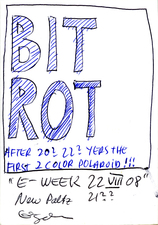 BIT
ROT
AFTER 20? 22? YERS THE
FIRST 2 COLOR POLAROID!!!
"E-WEEK 22 VIII 08"
New Paltz 21??